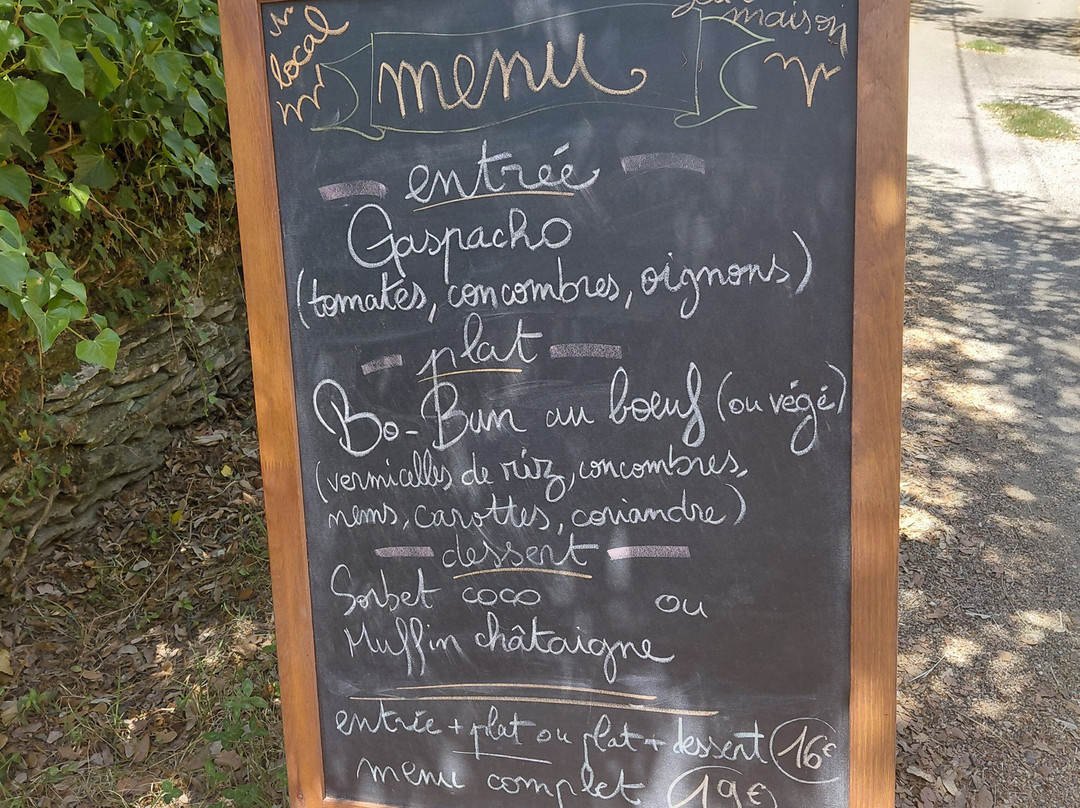 local
maison
menu
entrée
Gaspacho
(tomates, concombres, oignons)
plat
Bo-Bun au bœuf (ou végé)
(vermicelles de riz, concombres,
nems, carottes, coriandre)
dessert
Sorbet coco ou
Muffin châtaigne
entrée + plat ou plat + dessert 16€
menu complet 19€